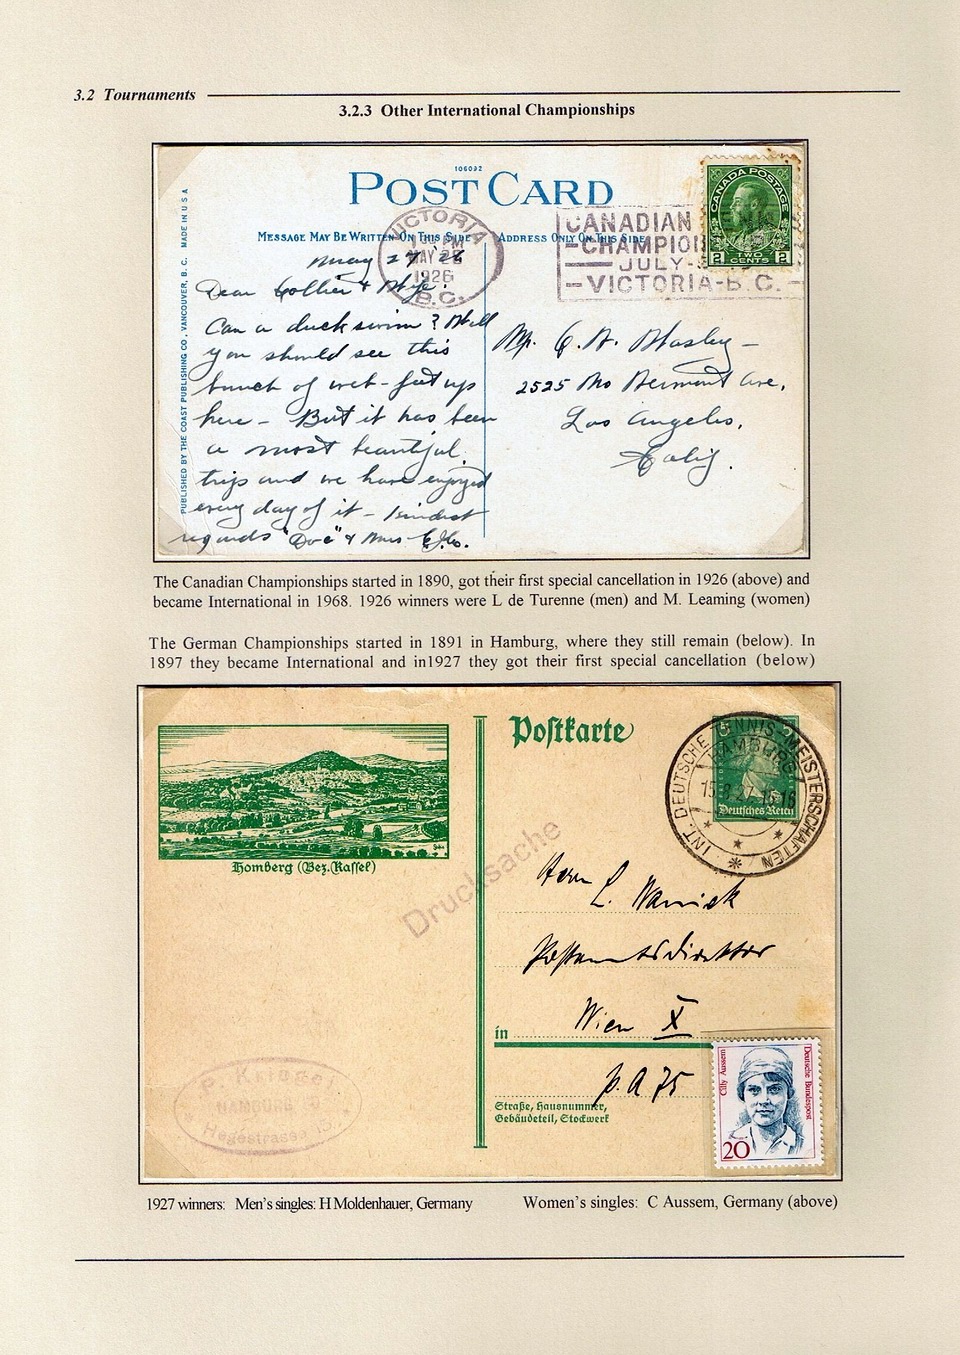 3.2 Tournaments
3.2.3 Other International Championships
106092
POST CARD
MESSAGE MAY BE WRITTEN ON THIS SIDE
ADDRESS ONLY ON THIS SIDE
PUBLISHED BY THE COAST PUBLISHING CO., VANCOUVER, B. C. MADE IN U S A
VICTORIA
PM
MAY 27
1926
B.C.
CANADIAN
CHAMPION
JULY-
VICTORIA-B.C.
CANADA POSTAGE
2 TWO CENTS 2
May 27 '26
Dear Collier & Wife:
Can a duck swim? Well
you should see this
bunch of web-feet up
here - But it has been
a most beautiful
trip and we have enjoyed
every day of it - kindest
regards "Doc" & Mrs
Mr. C. A. Wasley -
2525 No Vermont Ave,
Los Angeles,
Calif.
The Canadian Championships started in 1890, got their first special cancellation in 1926 (above) and
became International in 1968. 1926 winners were L de Turenne (men) and M. Leaming (women)
The German Championships started in 1891 in Hamburg, where they still remain (below). In
1897 they became International and in1927 they got their first special cancellation (below)
Postkarte
INT. DEUTSCHE TENNIS-MEISTERSCHAFTEN
HAMBURG
15.8.27
Deutsches Reich
Homberg (Bez. Kassel)
Drucksache
Herrn L. Warnick
Postamtsdirektor
in Wien X
p. A 75
Straße, Hausnummer,
Gebäudeteil, Stockwerk
P. Kriege
HAMBURG
Hegestrasse
Cilly Aussem
Deutsche Bundespost
20
1927 winners: Men's singles: H Moldenhauer, Germany
Women's singles: C Aussem, Germany (above)